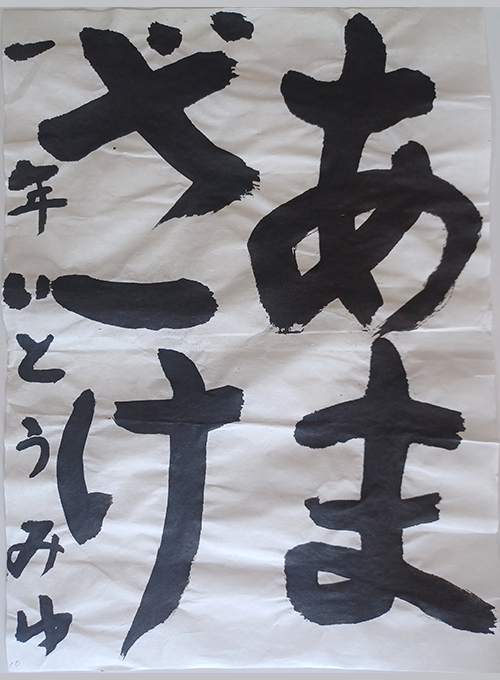 あま
ざけ
一年 いとうみゆ